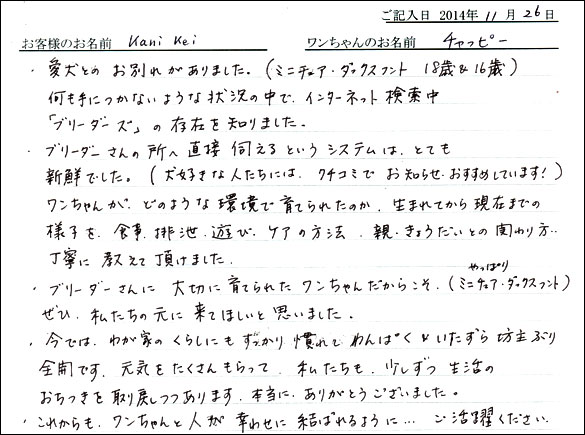 ご記入日 2014年 11月 26日
お客様のお名前 Kani Kei ワンちゃんのお名前 チャッピー
・愛犬とのお別れがありました。(ミニチュア・ダックスフント 18歳&16歳)
何も手につかないような状況の中で、インターネット検索中
「ブリーダーズ」の存在を知りました。
・ブリーダーさんの所へ直接伺えるというシステムは、とても
新鮮でした。(犬好きな人たちには、クチコミでお知らせ・おすすめしています!)
ワンちゃんが、どのような環境で育てられたのか、生まれてから現在までの
様子を、食事、排泄、遊び、ケアの方法、親・きょうだいとの関わり方…
丁寧に教えて頂けました。
・ブリーダーさんに大切に育てられたワンちゃんだからこそ、(やっぱりミニチュア・ダックスフント)
ぜひ、私たちの元に来てほしいと思いました。
・今では、わが家のくらしにもすっかり慣れてわんぱく&いたずら坊主ぶり
全開です。元気をたくさんもらって、私たちも、少しずつ生活の
おちつきを取り戻しつつあります。本当に、ありがとうございました。
・これからも、ワンちゃんと人が幸わせに結ばれるように…ご活躍ください。